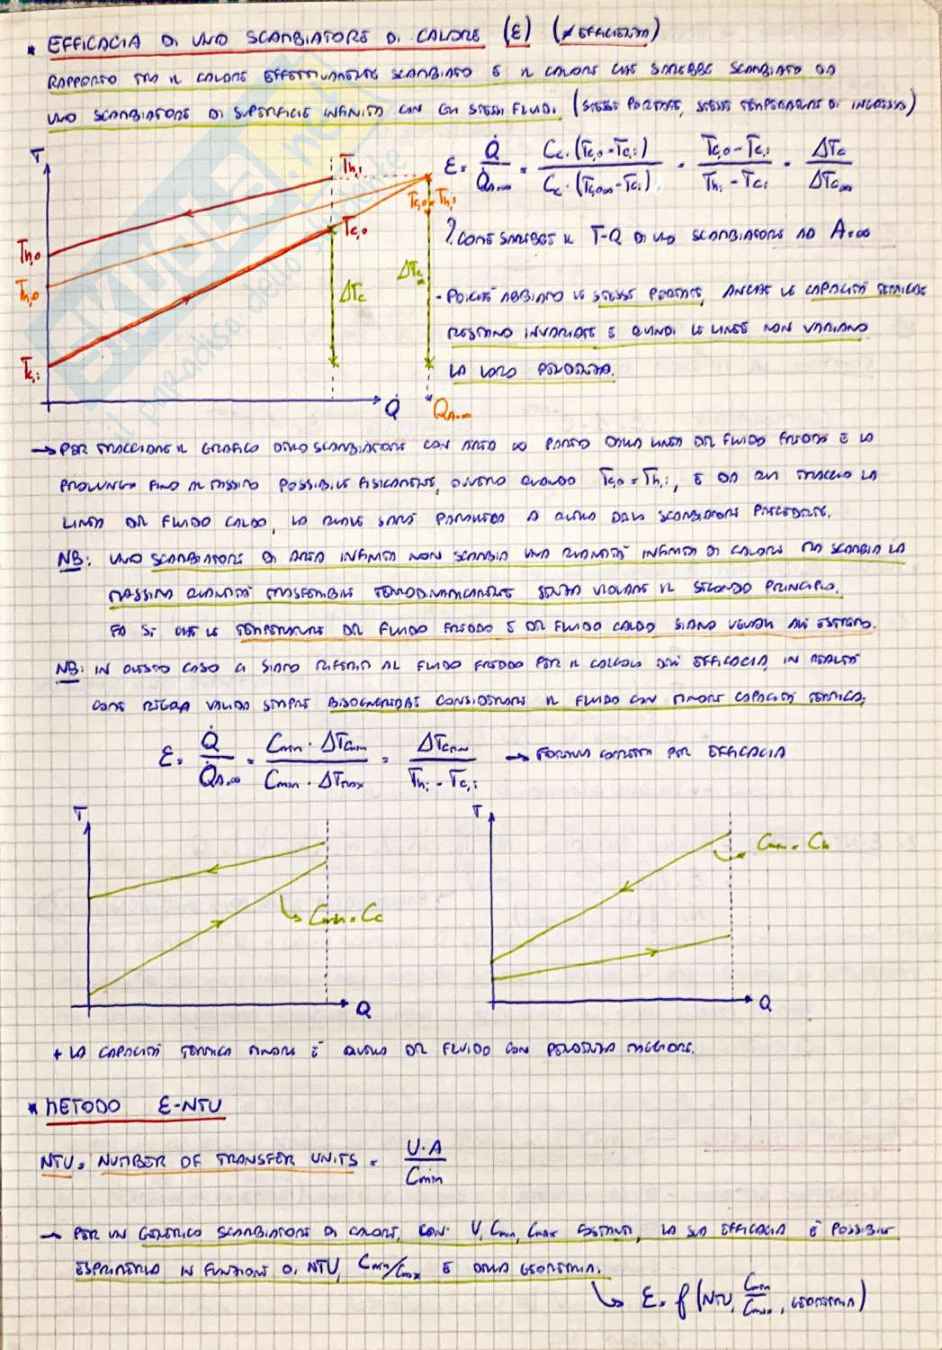 * EFFICACIA DI UNO SCAMBIATORE DI CALORE (ε) (≠ EFFICIENZA)
RAPPORTO TRA IL CALORE EFFETTIVAMENTE SCAMBIATO E IL CALORE CHE SAREBBE SCAMBIATO DA
UNO SCAMBIATORE DI SUPERFICIE INFINITA CON GLI STESSI FLUIDI. (STESSE PORTATE, STESSE TEMPERATURE DI INGRESSO)
T
Th,i
Th,o
Th,o
Tc,i
Tc,o
Tc,o = Th,i
ΔTc
ΔTc∞
Q̇
Q̇A=∞
ε = Q̇/Q̇A=∞ = Cc·(Tc,o-Tc,i)/Cc·(Tc,o∞-Tc,i) = Tc,o-Tc,i/Th,i-Tc,i = ΔTc/ΔTc∞
? COME SAREBBE IL T-Q DI UNO SCAMBIATORE AD A=∞
- POICHÉ ABBIAMO LE STESSE PORTATE, ANCHE LE CAPACITÀ TERMICHE
RESTANO INVARIATE E QUINDI LE LINEE NON VARIANO
LA LORO PENDENZA.
→ PER TRACCIARE IL GRAFICO DELLO SCAMBIATORE CON A=∞ IO PARTO DALLA LINEA DEL FLUIDO FREDDO E LO
PROLUNGO FINO AL MASSIMO POSSIBILE FISICAMENTE, OVVERO QUANDO Tc,o = Th,i, E DA QUI TRACCIO LA
LINEA DEL FLUIDO CALDO, LA QUALE SARÀ PARALLELA A QUELLA DELLO SCAMBIATORE PRECEDENTE.
NB: UNO SCAMBIATORE DI AREA INFINITA NON SCAMBIA UNA QUANTITÀ INFINITA DI CALORE MA SCAMBIA LA
MASSIMA QUANTITÀ TRASFERIBILE TERMODINAMICAMENTE SENZA VIOLARE IL SECONDO PRINCIPIO.
FA SÌ CHE LE TEMPERATURE DEL FLUIDO FREDDO E DEL FLUIDO CALDO SIANO UGUALI AGLI ESTREMI.
NB: IN QUESTO CASO CI SIAMO RIFERITI AL FLUIDO FREDDO PER IL CALCOLO DELL'EFFICACIA, IN REALTÀ
COME REGOLA VALIDA SEMPRE BISOGNEREBBE CONSIDERARE IL FLUIDO CON MINORE CAPACITÀ TERMICA;
ε = Q̇/Q̇A=∞ = Cmin·ΔTCmin/Cmin·ΔTmax = ΔTCmin/Th,i - Tc,i → FORMULA CORRETTA PER EFFICACIA
T
Cmin = Cc
Q
T
Cmin = Ch
Q
+ LA CAPACITÀ TERMICA MINORE È QUELLA DEL FLUIDO CON PENDENZA MAGGIORE.
* METODO ε-NTU
NTU = NUMBER OF TRANSFER UNITS = U·A/Cmin
→ PER UN GENERICO SCAMBIATORE DI CALORE, CON U, Cmin, Cmax COSTANTI, LA SUA EFFICACIA È POSSIBILE
ESPRIMERLA IN FUNZIONE DI NTU, Cmin/Cmax E DALLA GEOMETRIA.
↳ ε = f(NTU, Cmin/Cmax, GEOMETRIA)